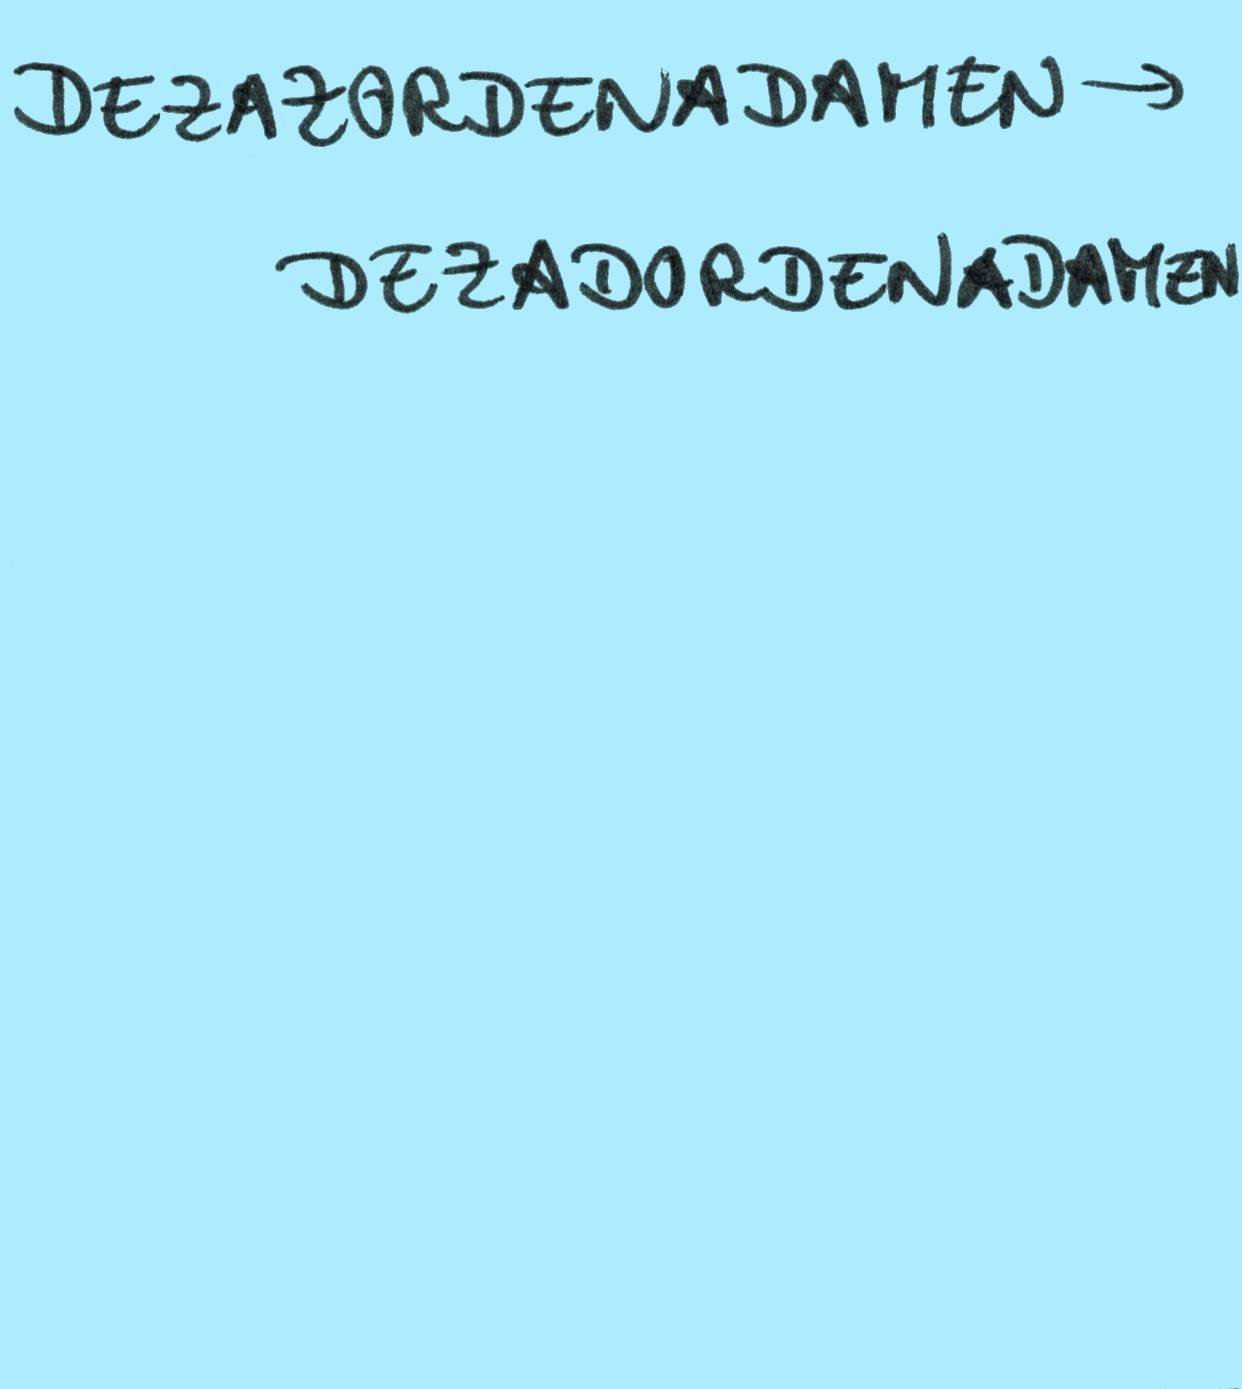 DEZAZORDENADAMEN →
DEZADORDENADAMEN